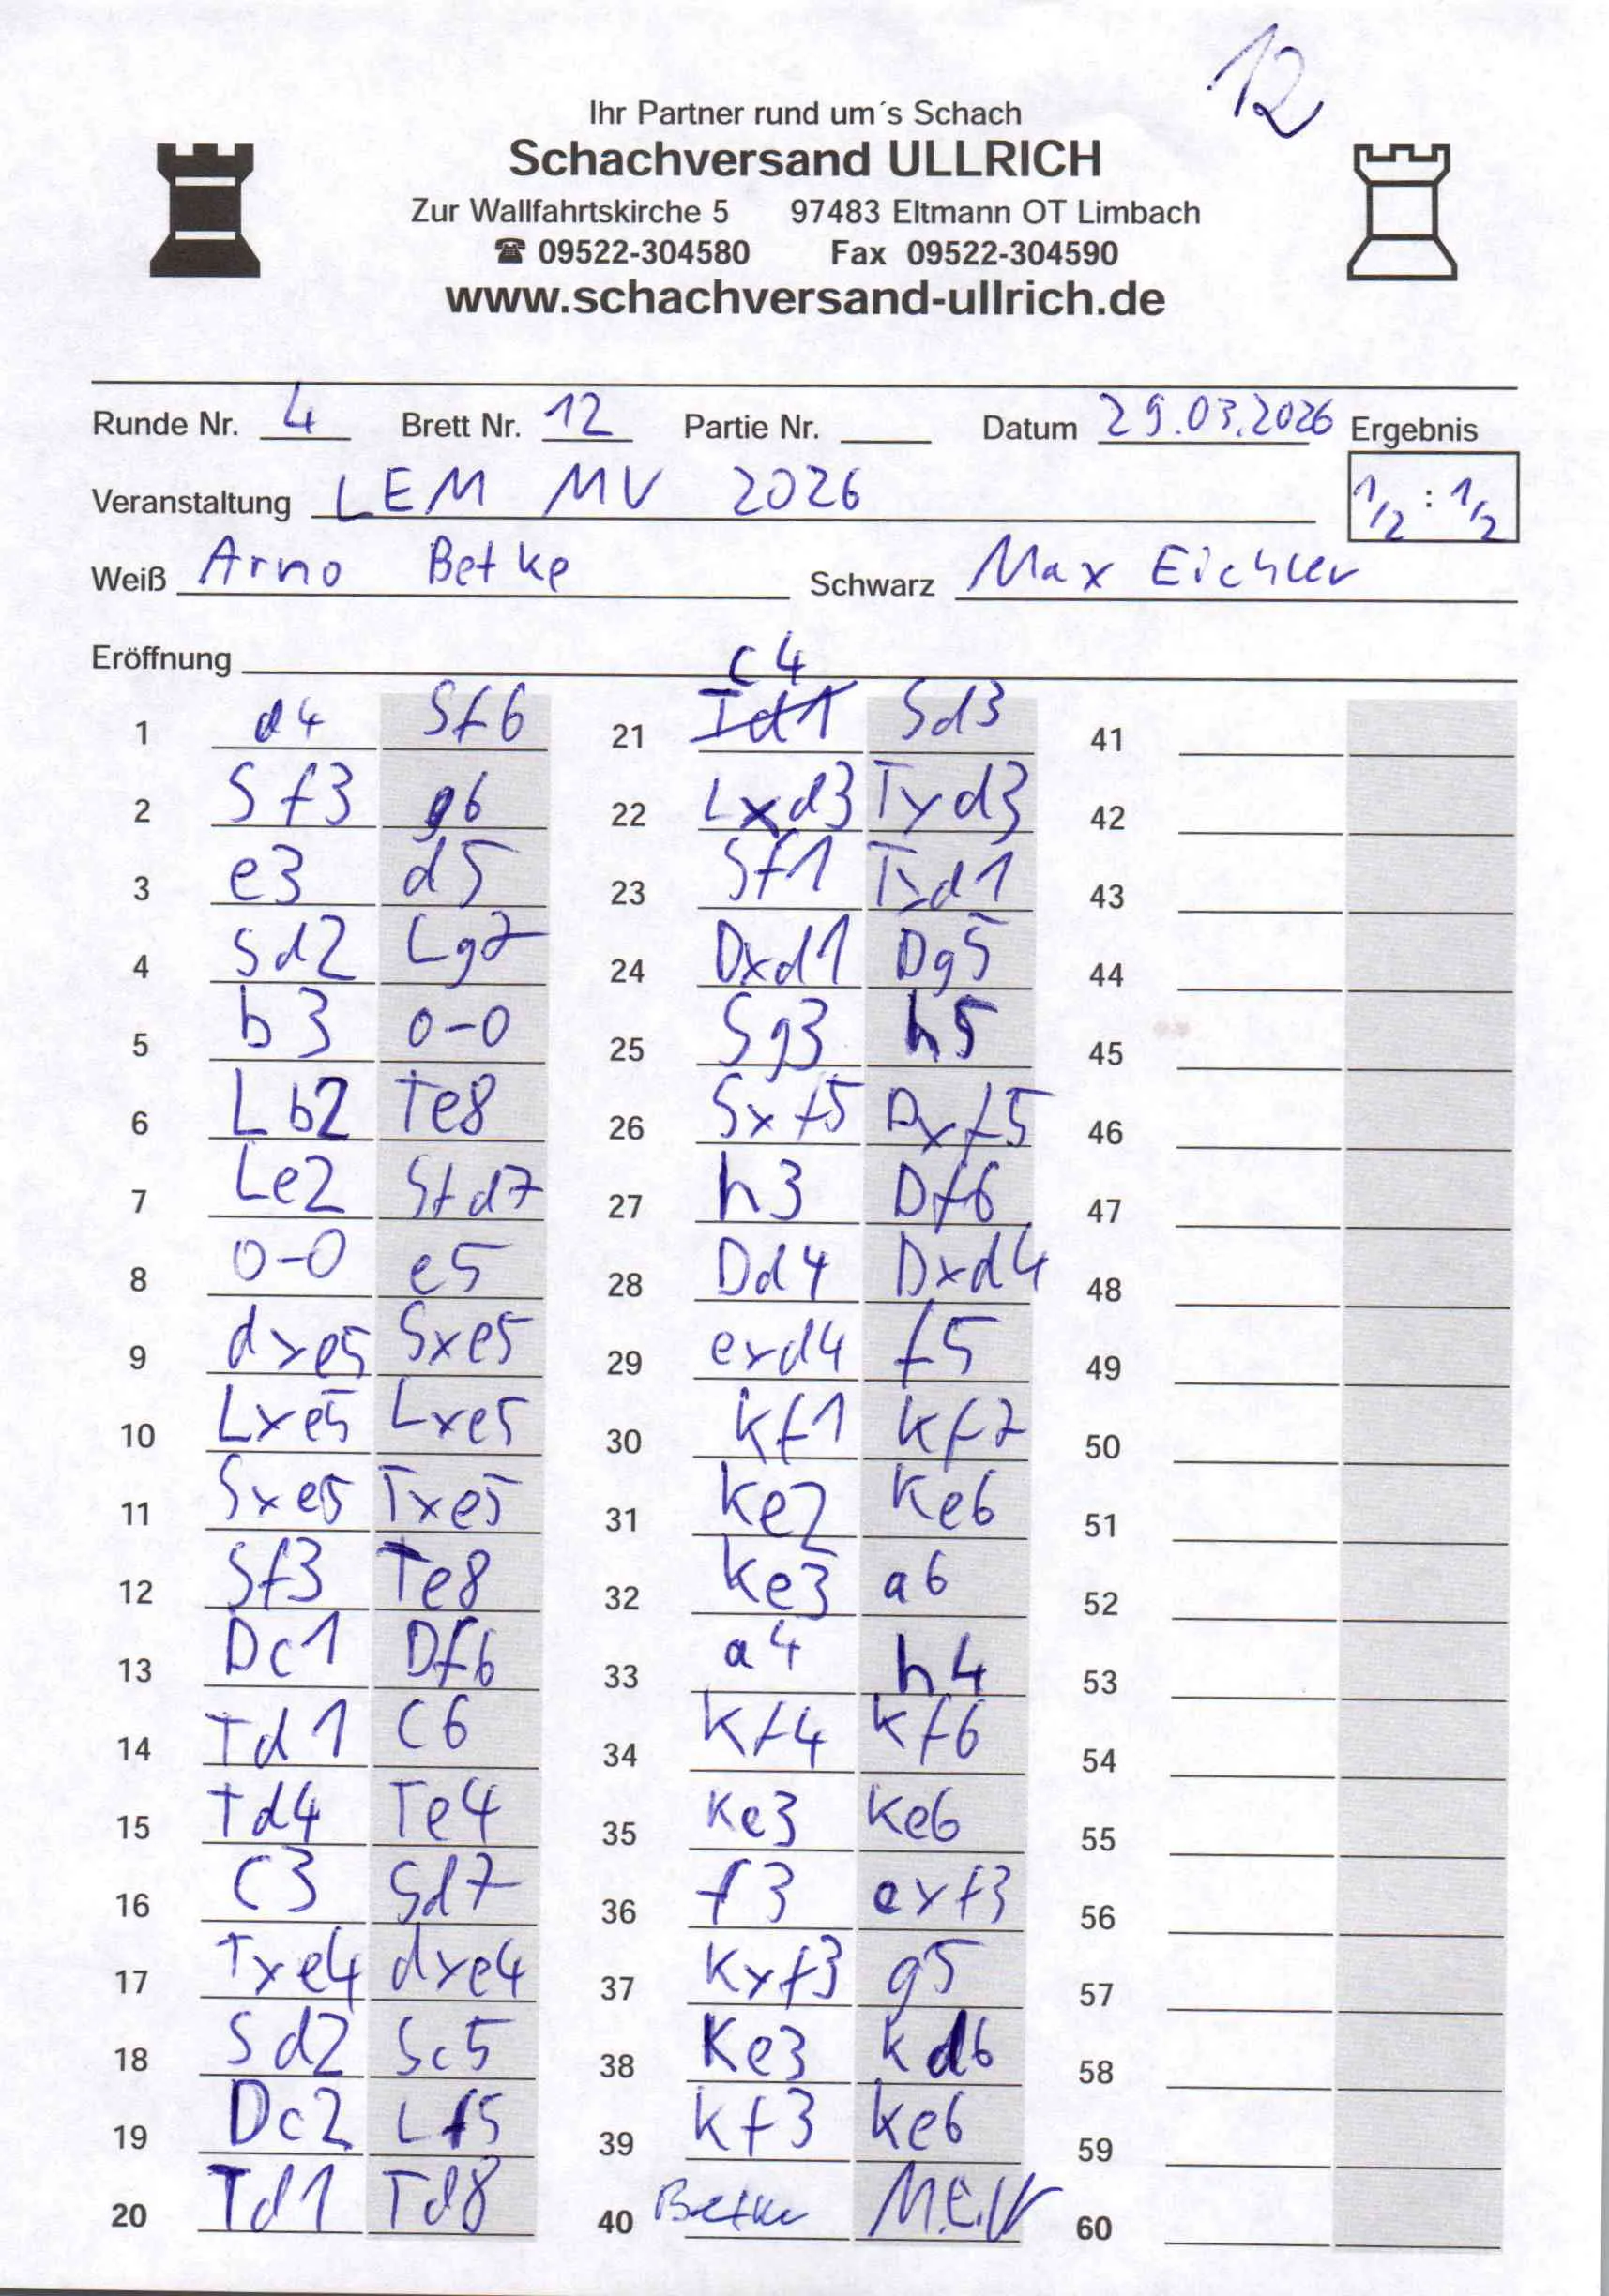 12
Ihr Partner rund um´s Schach
Schachversand ULLRICH
Zur Wallfahrtskirche 5 97483 Eltmann OT Limbach
☎ 09522-304580 Fax 09522-304590
www.schachversand-ullrich.de
Runde Nr. 4 Brett Nr. 12 Partie Nr. Datum 29.03.2026 Ergebnis
Veranstaltung LEM MV 2026 1/2 : 1/2
Weiß Arno Betke Schwarz Max Eichler
Eröffnung
c4
1 d4 Sf6 21 Td1 Sd3 41
2 Sf3 g6 22 Lxd3 Txd3 42
3 e3 d5 23 Sf1 Txd1 43
4 Sd2 Lg7 24 Dxd1 Dg5 44
5 b3 0-0 25 Sg3 h5 45
6 Lb2 Te8 26 Sxf5 Dxf5 46
7 Le2 Sfd7 27 h3 Df6 47
8 0-0 e5 28 Dd4 Dxd4 48
9 dxe5 Sxe5 29 exd4 f5 49
10 Lxe5 Lxe5 30 Kf1 Kf7 50
11 Sxe5 Txe5 31 Ke2 Ke6 51
12 Sf3 Te8 32 Ke3 a6 52
13 Dc1 Df6 33 a4 h4 53
14 Td1 c6 34 Kf4 Kf6 54
15 Td4 Te4 35 Ke3 Ke6 55
16 c3 Sd7 36 f3 exf3 56
17 Txe4 dxe4 37 Kxf3 g5 57
18 Sd2 Sc5 38 Ke3 Kd6 58
19 Dc2 Lf5 39 Kf3 Ke6 59
20 Td1 Td8 40 Betke 60